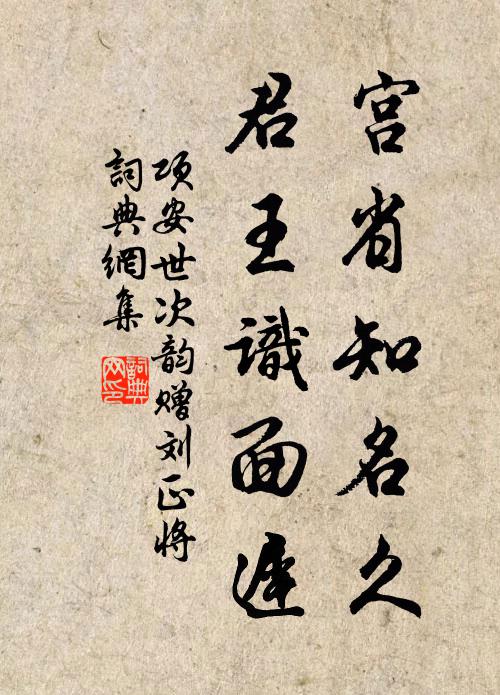 宫省知名久
君王識面遅
项安世次韵赠刘正将
詞典網集
詞典
网印